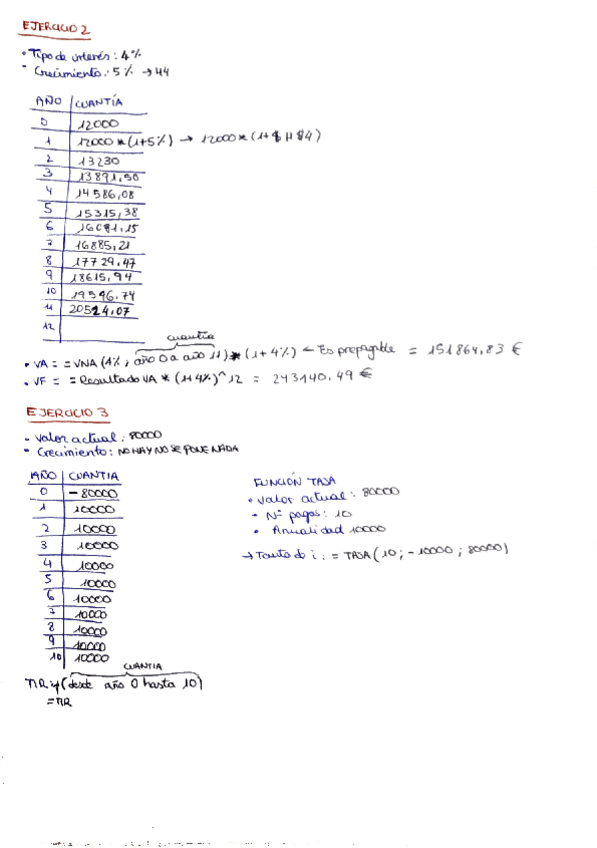 EJERCICIO 2
• Tipo de interés: 4%
• Crecimiento: 5% → 44
AÑO | CUANTÍA
0 12000
1 12000*(1+5%) → 12000*(1+$H$4)
2 13230
3 13891,50
4 14586,08
5 15315,38
6 16081,15
7 16885,21
8 17729,47
9 18615,94
10 19546,74
11 20524,07
12
cuantía
• VA = =VNA(4%; año 0 a año 11)*(1+4%) ← Es prepagable = 151864,83 €
• VF = =Resultado VA * (1+4%)^12 = 243140,49 €
EJERCICIO 3
- Valor actual: 80000
• Crecimiento: NO HAY NO SE PONE NADA
AÑO | CUANTIA
0 -80000
1 10000
2 10000
3 10000
4 10000
5 10000
6 10000
7 10000
8 10000
9 10000
10 10000
FUNCIÓN TASA
• Valor actual: 80000
• Nº pagos: 10
• Anualidad 10000
→ Tanto de i: =TASA(10;-10000;80000)
CUANTIA
TIR (desde año 0 hasta 10)
=TIR